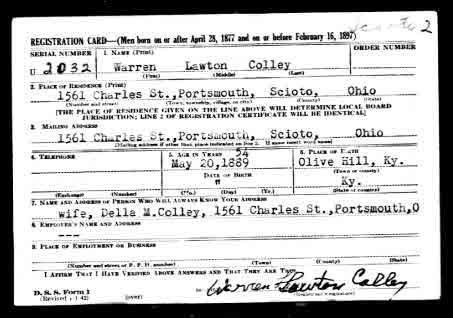 Scioto 2
REGISTRATION CARD—(Men born on or after April 28, 1877 and on or before February 16, 1897)
SERIAL NUMBER 1. NAME (Print) ORDER NUMBER
U 2032 Warren Lawton Colley
(First) (Middle) (Last)
2. PLACE OF RESIDENCE (Print)
1561 Charles St.,Portsmouth, Scioto, Ohio
(Number and street) (Town, township, village, or city) (County) (State)
[THE PLACE OF RESIDENCE GIVEN ON THE LINE ABOVE WILL DETERMINE LOCAL BOARD
JURISDICTION; LINE 2 OF REGISTRATION CERTIFICATE WILL BE IDENTICAL]
3. MAILING ADDRESS
1561 Charles St.,Portsmouth, Scioto, Ohio
[Mailing address if other than place indicated on line 2. If same insert word same]
4. TELEPHONE 5. AGE IN YEARS 6. PLACE OF BIRTH
May 20,1889 Olive Hill, Ky.
DATE OF BIRTH (Town or county)
" Ky.
(Exchange) (Number) (Mo.) (Day) (Yr.) (State or country)
7. NAME AND ADDRESS OF PERSON WHO WILL ALWAYS KNOW YOUR ADDRESS
wife, Della M.Colley, 1561 Charles St.,Portsmouth,O
8. EMPLOYER'S NAME AND ADDRESS
---
9. PLACE OF EMPLOYMENT OR BUSINESS
(Number and street or R. F. D. number) (Town) (County) (State)
I AFFIRM THAT I HAVE VERIFIED ABOVE ANSWERS AND THAT THEY ARE TRUE.
Warren Lawton Colley
D. S. S. Form 1
(Revised 4-1-42) (over) (Registrant's signature)